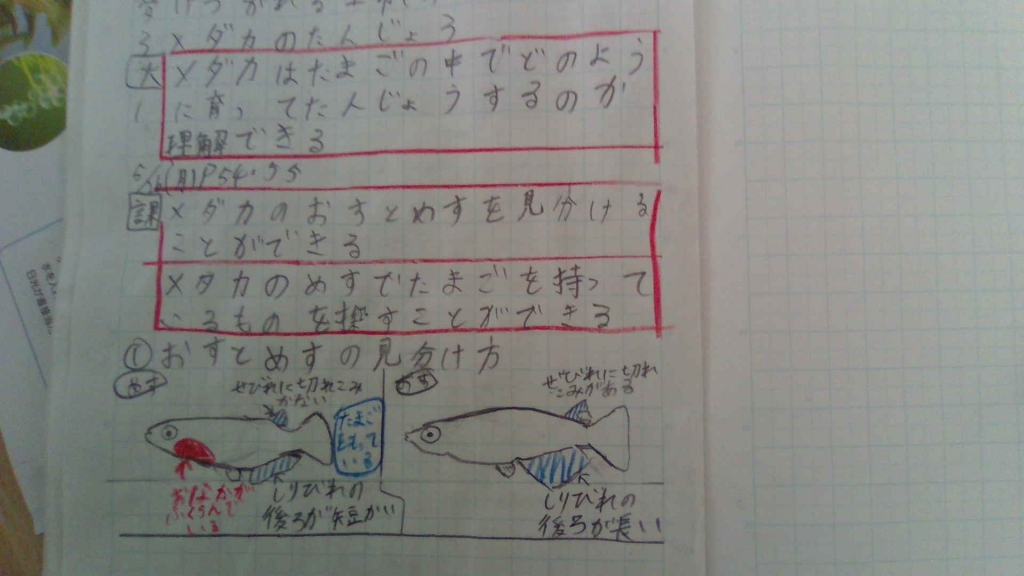 3 メダカのたんじょう
大 メダカはたまごの中でどのよう
に育ってたんじょうするのか
理解できる
(月)P54.55
課 メダカのおすとめすを見分ける
ことができる
メダカのめすでたまごを持って
いるものを探すことができる
① おすとめすの見分け方
めす
せびれに切れこみ
がない
たまご
をもって
いる
おなかが
ふくらんで
いる
しりびれの
後ろが短かい
おす
せびれに切れ
こみがある
しりびれの
後ろが長い